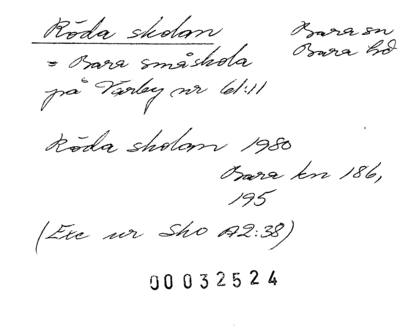 Röda skolan
Bara sn
Bara hd
= Bara småskola
på Värby nr 61:11
Röda skolan 1980
Bara kn 186,
195
(Exc ur Sko A2:38)
00032524